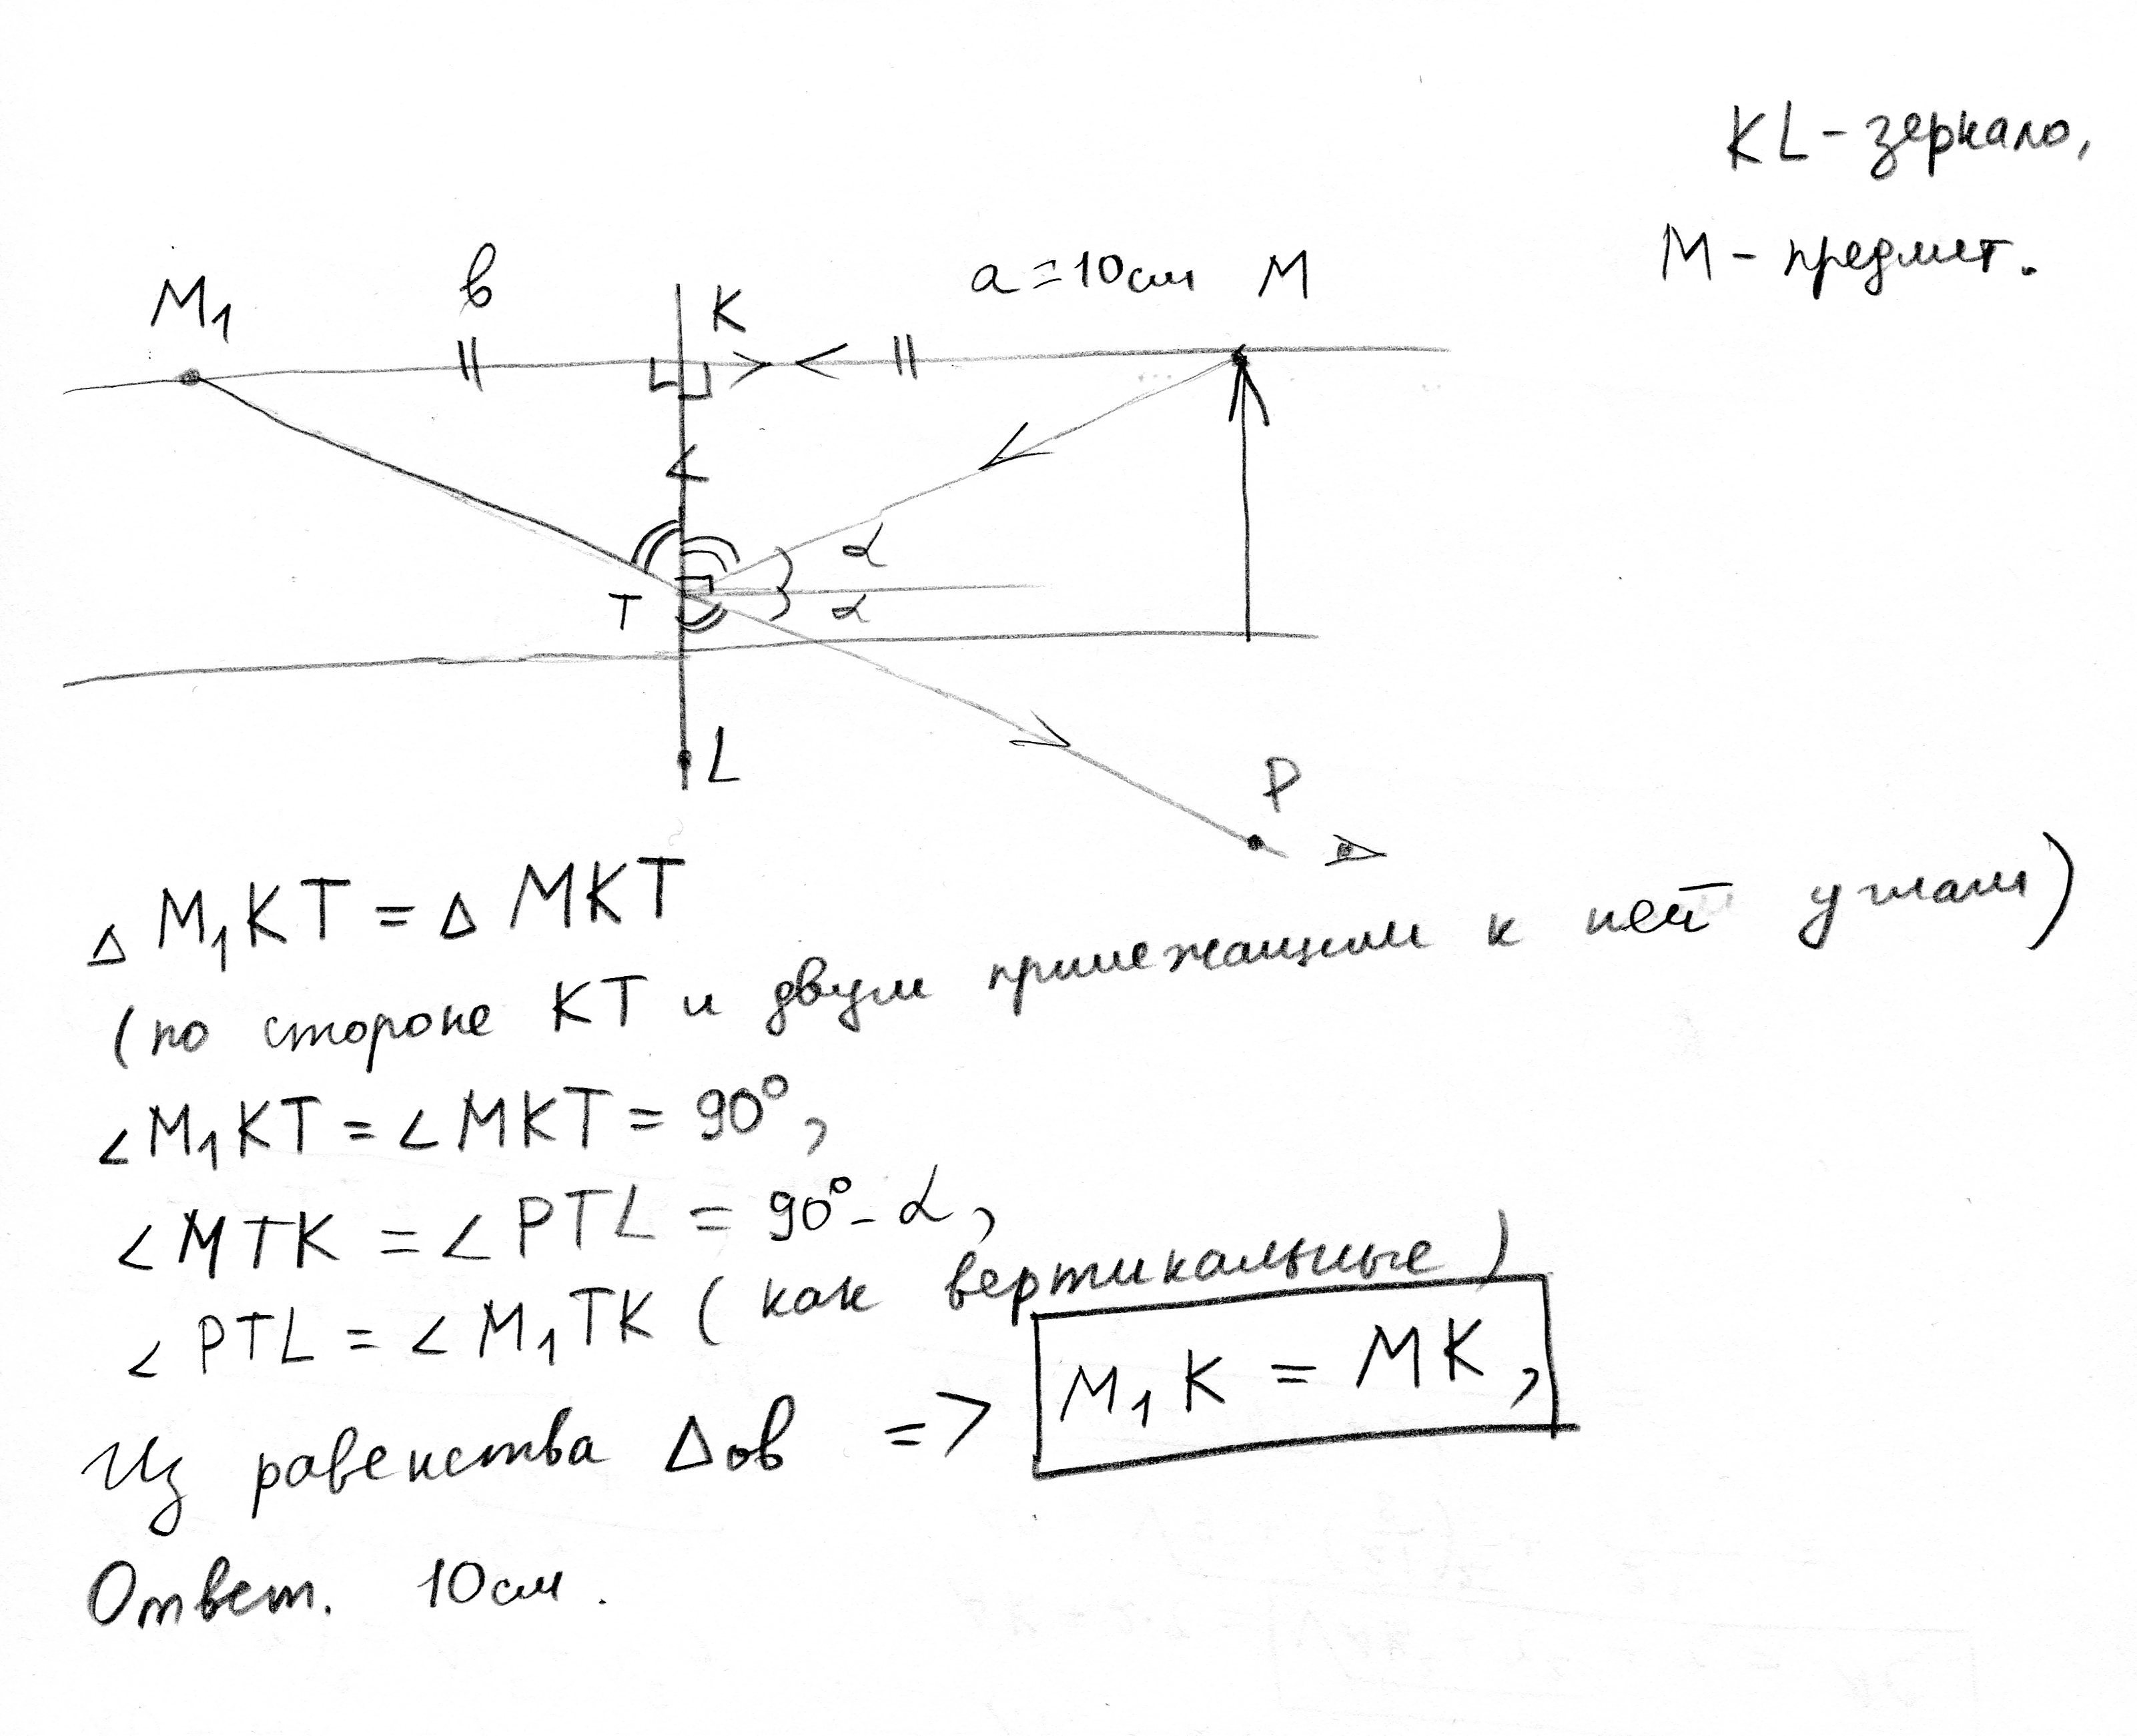 KL - зеркало,
M - предмет.
M₁ в K a = 10см M
α
α
T
L
P
Δ M₁KT = Δ MKT
(по стороне KT и двум прилежащим к ней углам)
∠M₁KT = ∠MKT = 90°,
∠MTK = ∠PTL = 90° - α,
∠PTL = ∠M₁TK (как вертикальные)
Из равенства Δов => M₁K = MK,
Ответ. 10см.